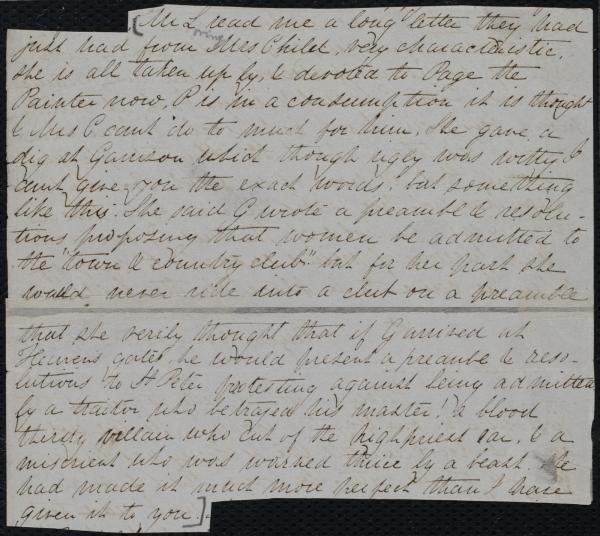 [Mr L read me a long letter they had
just had from Mrs Child, very characteristic.
she is all taken up by, & devoted to Page the
Painter now, P is in a consumption it is thought
& Mrs C cant do to much for him. She gave a
dig at Garrison which though ugly was witty I
cant give you the exact words, but something
like this. She said G wrote a preamble & resolu-
tions proposing that women be admitted to
the "town & country club" but for her part she
would never ride into a club on a preamble
that she verily thought that if G arrived at
Heavens gates, he would present a preambe & reso-
lutions to St Peter protesting against being admitted
by a traitor who betrayed his master! a blood
thirsty villain who cut of the high priest ear, & a
miscrient who was warned thrice by a beast. She
had made it much more perfect than I have
given it to you.]